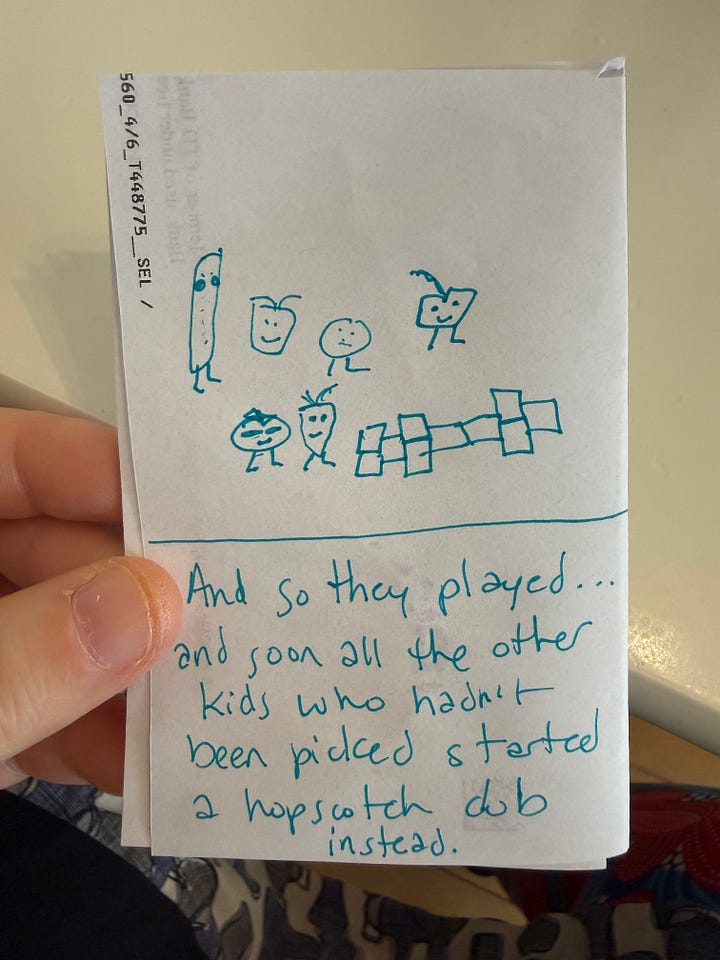 560_4/6_T448775__SEL /
And so they played...
and soon all the other
kids who hadn't
been picked started
a hopscotch club
instead.